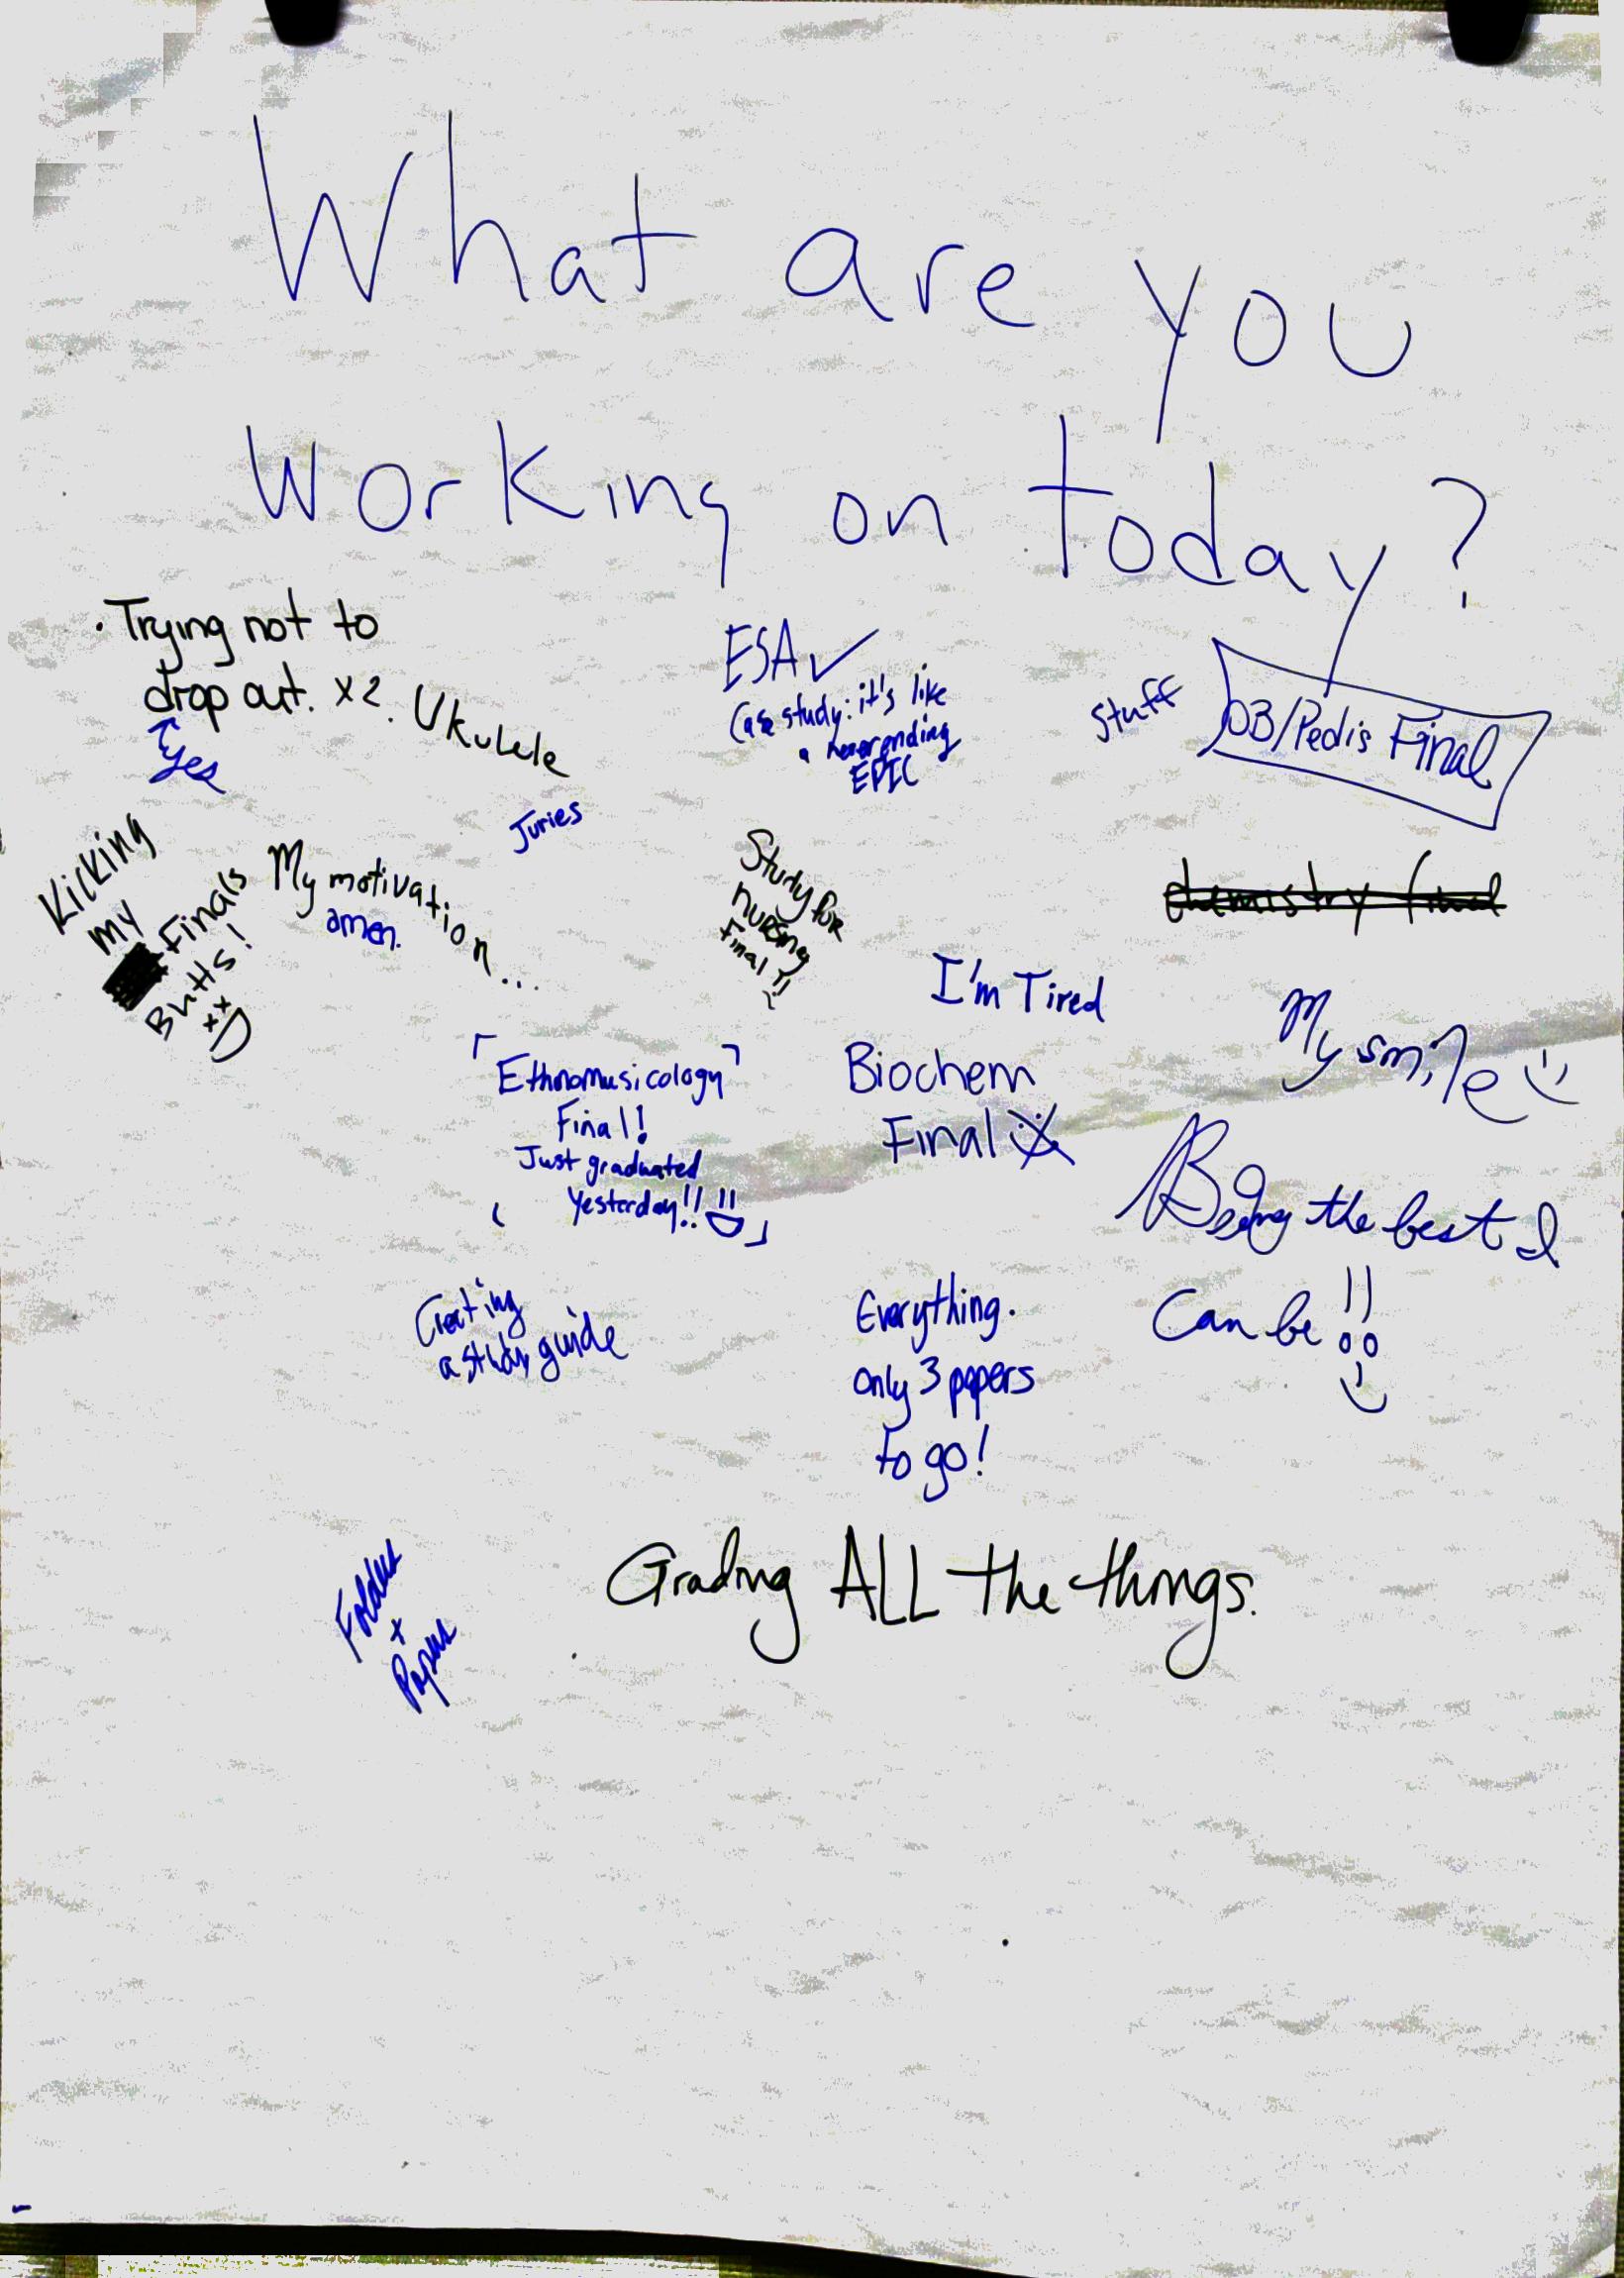 What are you
Working on today?
• Trying not to
drop out. x2.
Yes
Ukulele
ESA ✓
(as study: it's like
a neverending
EPIC
Stuff
OB/Pedis Final
Kicking
my
Finals
Butts!
My motivation...
amen.
Juries
Study for
nursing
final!!
chemistry final
I'm Tired
My smile
「Ethnomusicology
Final!
Just graduated
Yesterday!!
Biochem
Final
Being the best I
Can be!!
Creating
a study guide
Everything.
only 3 papers
to go!
Grading ALL the things.
+
Papers